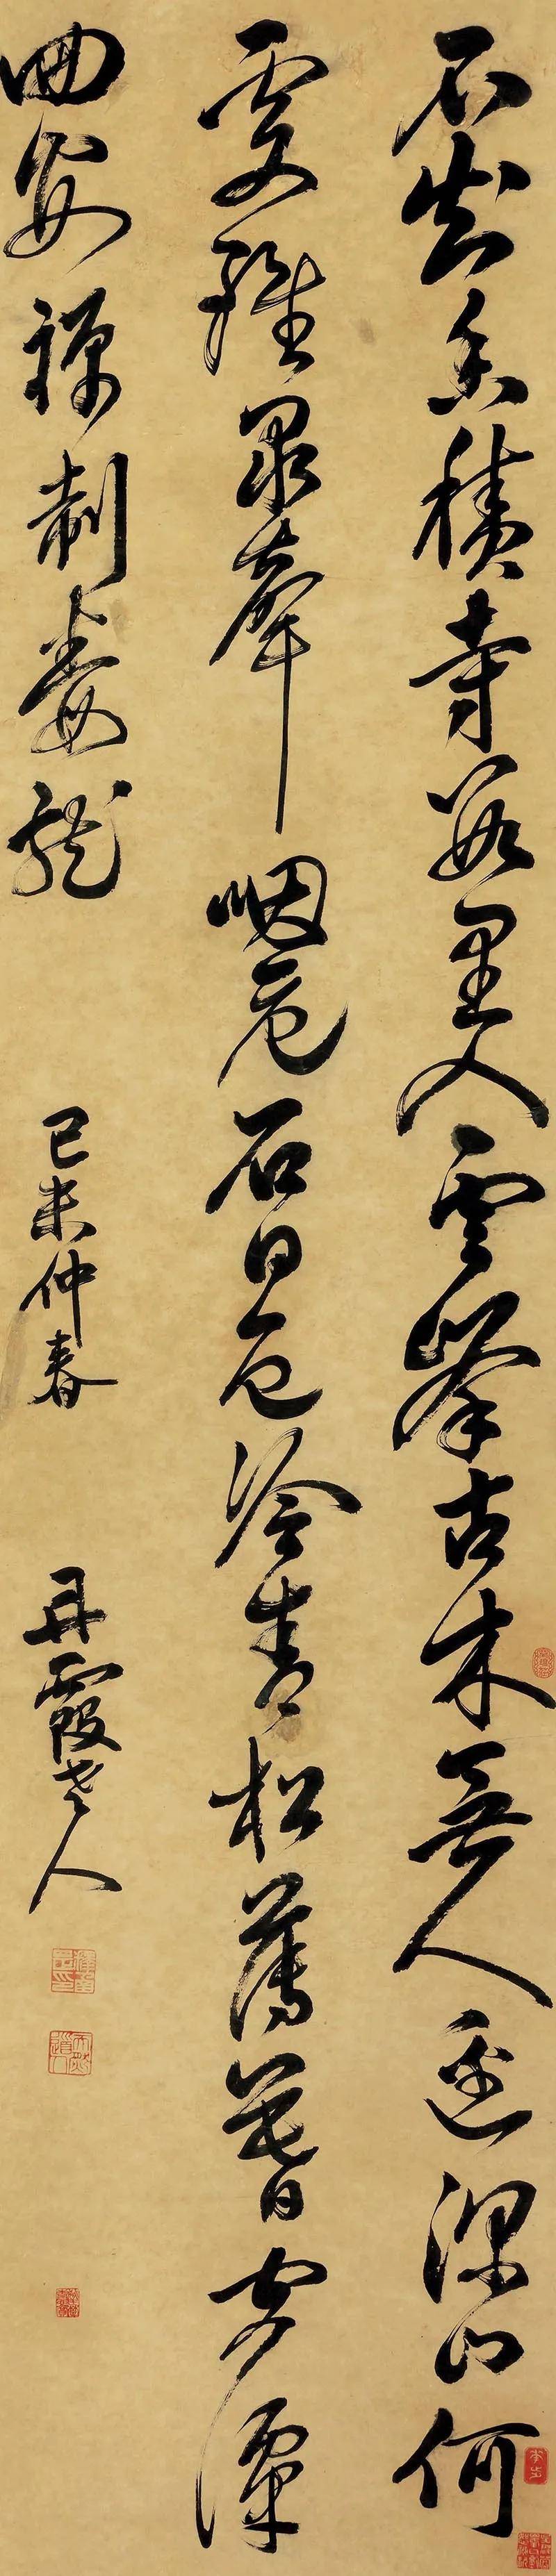 不知香積寺數里入雲峯古木無人逕深山何
處鐘泉聲咽危石日色冷青松薄暮空潭
曲安禪制毒龍
己未仲春
丹霞老人